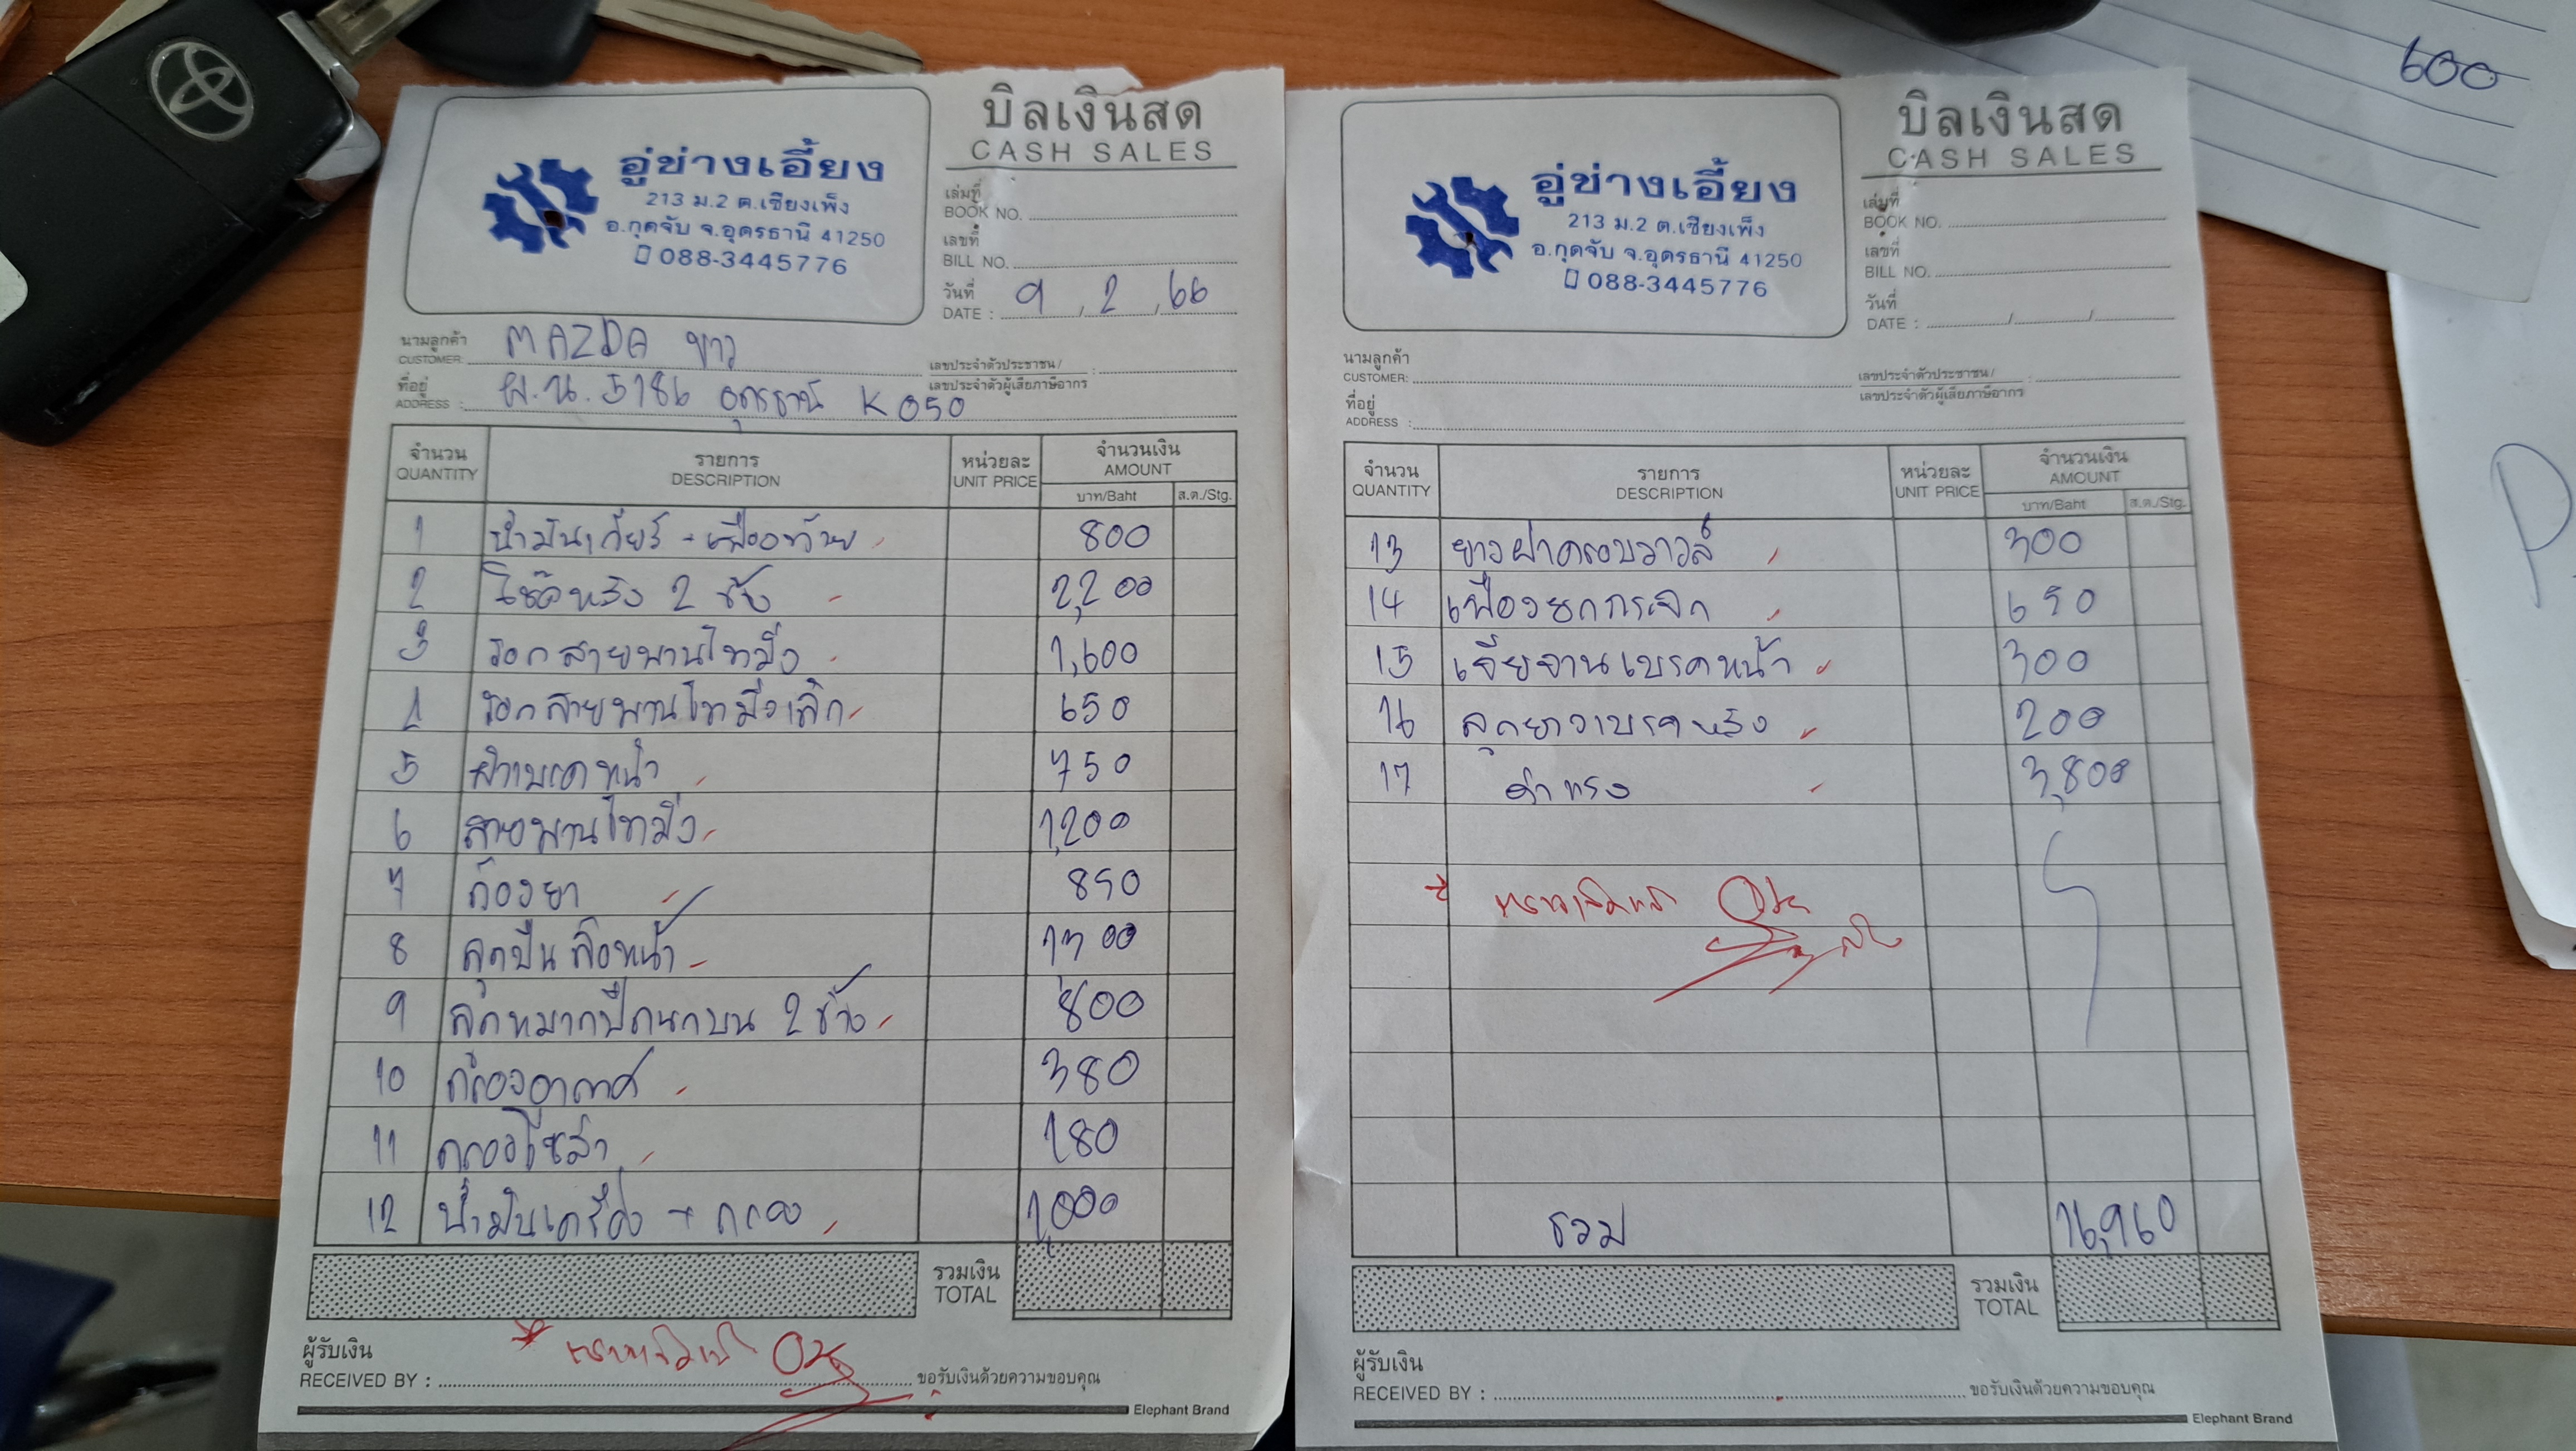 บิลเงินสด
CASH SALES
อู่ช่างเอี้ยง
213 ม.2 ต.เชียงเพ็ง
อ.กุดจับ จ.อุดรธานี 41250
088-3445776
เล่มที่
BOOK NO.
เลขที่
BILL NO.
วันที่
DATE : 9 / 2 / 66
นามลูกค้า
CUSTOMER: MAZDA ขาว
เลขประจำตัวประชาชน/
เลขประจำตัวผู้เสียภาษีอากร :
ที่อยู่
ADDRESS : ผ.น. 5186 อุดรธานี K 050
จำนวน รายการ หน่วยละ จำนวนเงิน
QUANTITY DESCRIPTION UNIT PRICE AMOUNT
บาท/Baht ส.ต./Stg.
1 น้ำมันเกียร์ + เฟืองท้าย 800
2 โช๊คหลัง 2 ข้าง 2,200
3 รอกสายพานไทมิ่ง 1,600
รอกสายพานไทมิ่งเล็ก 650
5 ผ้าเบรคหน้า 750
6 สายพานไทมิ่ง 1,200
7 850
8 ลูกปืนล้อหน้า 1300
9 ลูกหมากปีกนกบน 2 ข้าง 800
10 กรองอากาศ 380
11 กรองโซล่า 180
12 น้ำมันเครื่อง + กรอง 1,000
รวมเงิน
TOTAL
ผู้รับเงิน
RECEIVED BY : ขอรับเงินด้วยความขอบคุณ
Elephant Brand
บิลเงินสด
CASH SALES
อู่ช่างเอี้ยง
213 ม.2 ต.เชียงเพ็ง
อ.กุดจับ จ.อุดรธานี 41250
088-3445776
เล่มที่
BOOK NO.
เลขที่
BILL NO.
วันที่
DATE : / /
นามลูกค้า
CUSTOMER:
เลขประจำตัวประชาชน/
เลขประจำตัวผู้เสียภาษีอากร :
ที่อยู่
ADDRESS :
จำนวน รายการ หน่วยละ จำนวนเงิน
QUANTITY DESCRIPTION UNIT PRICE AMOUNT
บาท/Baht ส.ต./Stg.
13 ยางฝาครอบวาวล์ 300
14 เฟืองยกกระจก 650
15 เจียจานเบรคหน้า 300
16 ลูกยางเบรคหลัง 200
17 ค่าแรง 3,800
รวม 16,960
รวมเงิน
TOTAL
ผู้รับเงิน
RECEIVED BY : ขอรับเงินด้วยความขอบคุณ
Elephant Brand
600